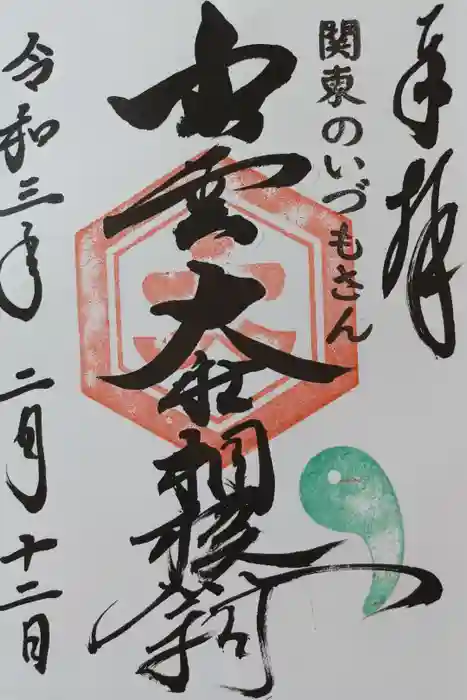 奉拝
関東のいづもさん
出雲大社相模分祠
令和三年 二月十二日